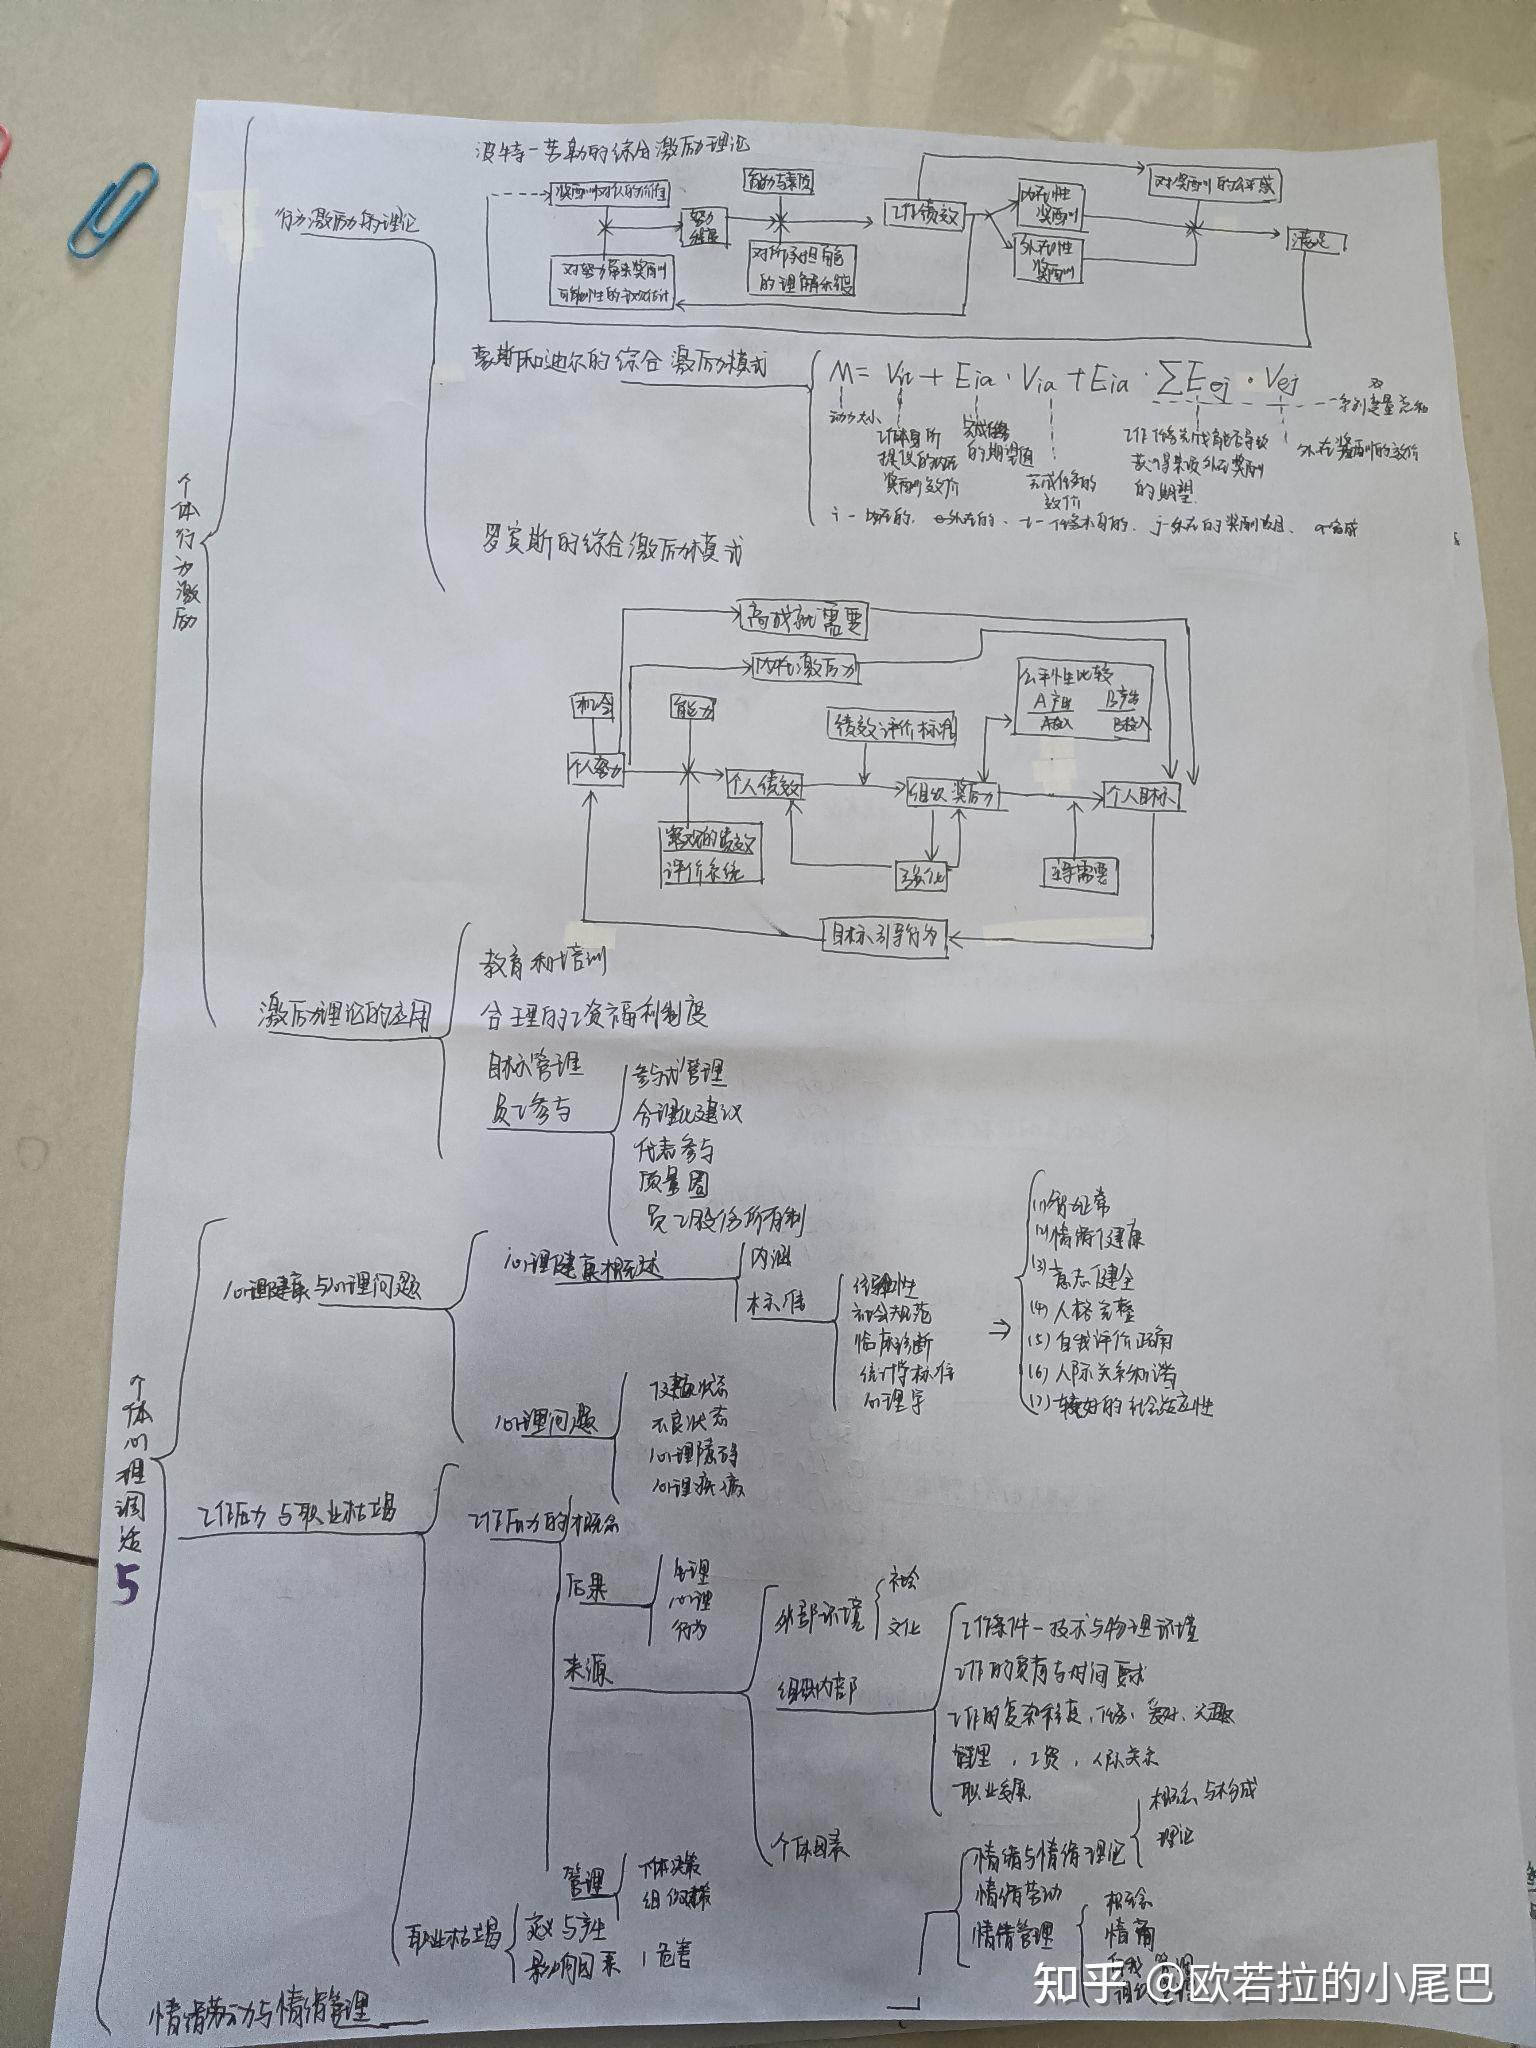 个体行为激励
行为激励的理论
波特-劳勒的综合激励理论
奖酬对个人的价值
对努力带来奖酬
可能性的主观估计
努力
程度
能力与素质
对所承担角色
的理解示徑
工作绩效
内在性
奖酬
外在性
奖酬
对奖酬的公平感
满足
豪斯和迪尔的综合激励模式
M = Vit + Eia · Via + Eia · ΣEej · Vej
动力大小
工作本身所
提供的内在
奖酬效价
完成任务
的期望值
完成任务的
效价
工作任务完成能否导致
获得某项外在奖酬
的期望
外在奖酬的效价
双
系列变量总和
i-内在的、e外在的、t-任务本身的、j-外在的奖酬项目、a完成
罗宾斯的综合激励模式
高成就需要
内在激励
机会
能力
个人努力
个人绩效
客观的绩效
评价系统
绩效评价标准
公平性比较
A产出 B产出
A投入 B投入
组织奖励
强化
个人目标
主导需要
目标引导行为
激励理论的应用
教育和培训
合理的工资福利制度
目标管理
员工参与
参与式管理
合理化建议
代表参与
质量圈
员工股份所有制
个体心理调适
5
心理健康与心理问题
心理健康概述
内涵
标准
经验性
社会规范
临床诊断
统计学标准
心理学
⇒
(1)智力正常
(2)情绪健康
(3)意志健全
(4)人格完整
(5)自我评价正确
(6)人际关系和谐
(7)较好的社会适应性
心理问题
健康状态
不良状态
心理障碍
心理疾病
工作压力与职业枯竭
工作压力的概念
后果
生理
心理
行为
来源
外部环境
社会
文化
组织内部
工作条件-技术与物理环境
工作的负荷与时间要求
工作的复杂程度、任务、爱好、兴趣
管理，工资，人际关系
职业发展
个体因素
管理
个体决策
组织决策
职业枯竭
定义与产生
影响因素
危害
情绪劳动与情绪管理
情绪与情绪理论
概念与构成
理论
情绪劳动
情绪管理
概念
情商
自我管理
组织管理
知乎 @欧若拉的小尾巴